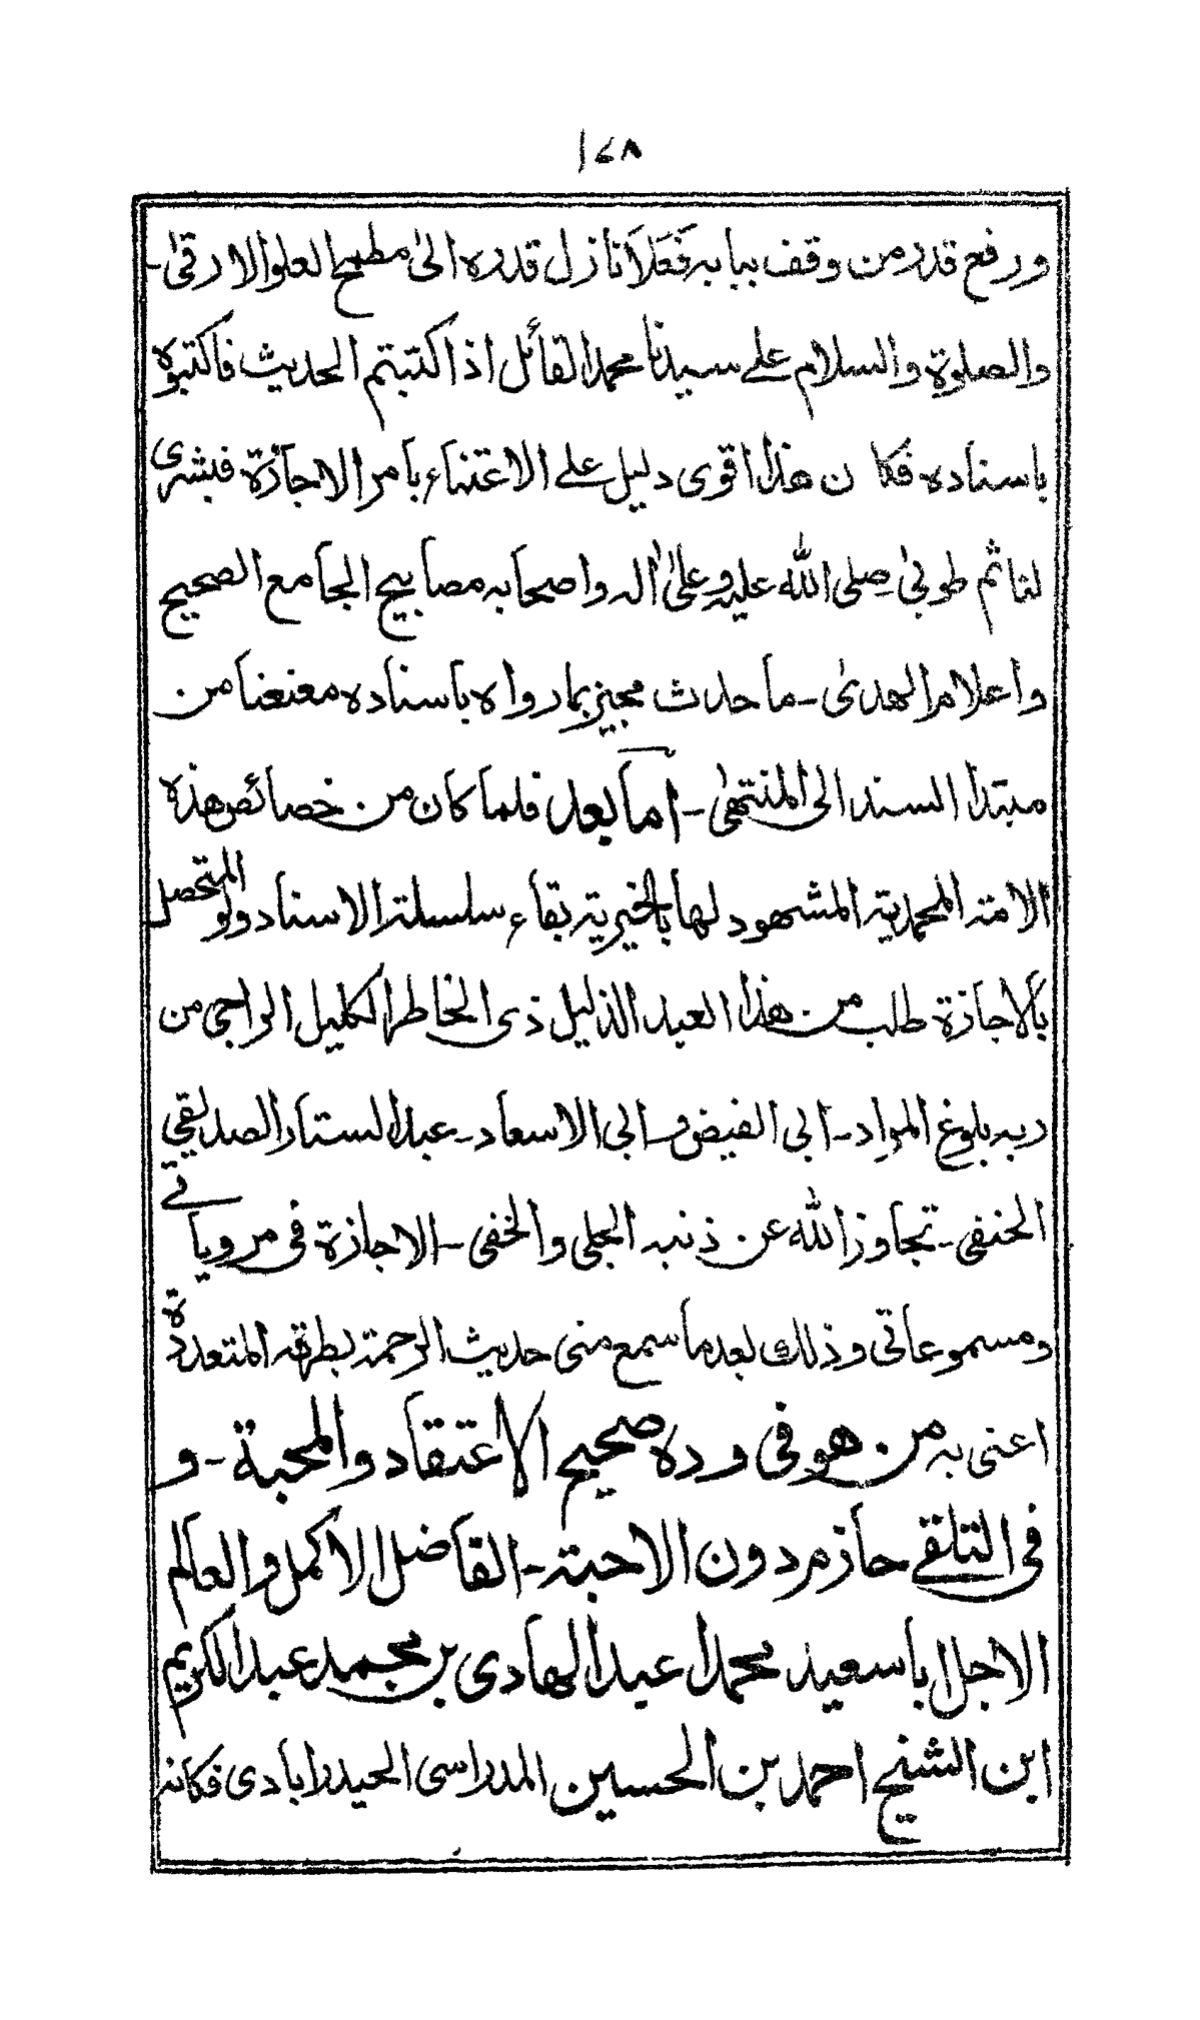 ١٤٨
ورفع قدر من وقف ببابه فَعَلَا نازل قدره الىٰ مطمح العلو الارقىٰ -
والصلوة والسلام علے سيدنا محمد القائل اذا كتبتم الحديث فاكتبوه
باسناده فكان هذا اقوى دليل علے الاعتناء بامر الاجازة فبشرى
لنا ثم طوبىٰ - صلى الله عليه وعلىٰ اٰله واصحابه مصابيح الجامع الصحيح
واعلام الهدىٰ - ما حدث مجيز بما رواه باسناده معنعنا من
مبتدأ السند الى المنتهىٰ - اما بعد فلما كان من خصائص هذه
الامة المحمدية المشهود لها بالخيرية بقاء سلسلة الاسناد ولو المتحصل
بالاجازة طلب من هذا العبد الذليل ذى الخاطر الكليل الراجى من
ربه بلوغ المراد - ابى الفيض و ابى الاسعاد - عبد الستار الصديقي
الحنفى - تجاوز الله عن ذنبه الجلى والخفى - الاجازة فى مروياتے
ومسموعاتى وذلك بعد ما سمع منى حديث الرحمة بطرقه المتعددة
اعنى به من هو فى وده صحيح الاعتقاد والمحبة - و
فى التلقے حاز مردون الاحبة - الفاضل الاكمل والعالم
الاجل باسعيد محمد عبد الهادى بن محمد عبد الكريم
ابن الشيخ احمد بن الحسين المدراسى الحيدرابادى فكانه